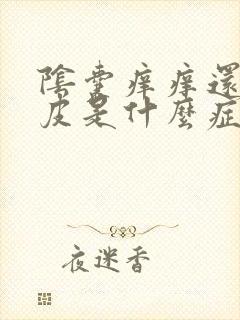 陰囊痒痒還
皮是什麼症
夜迷香